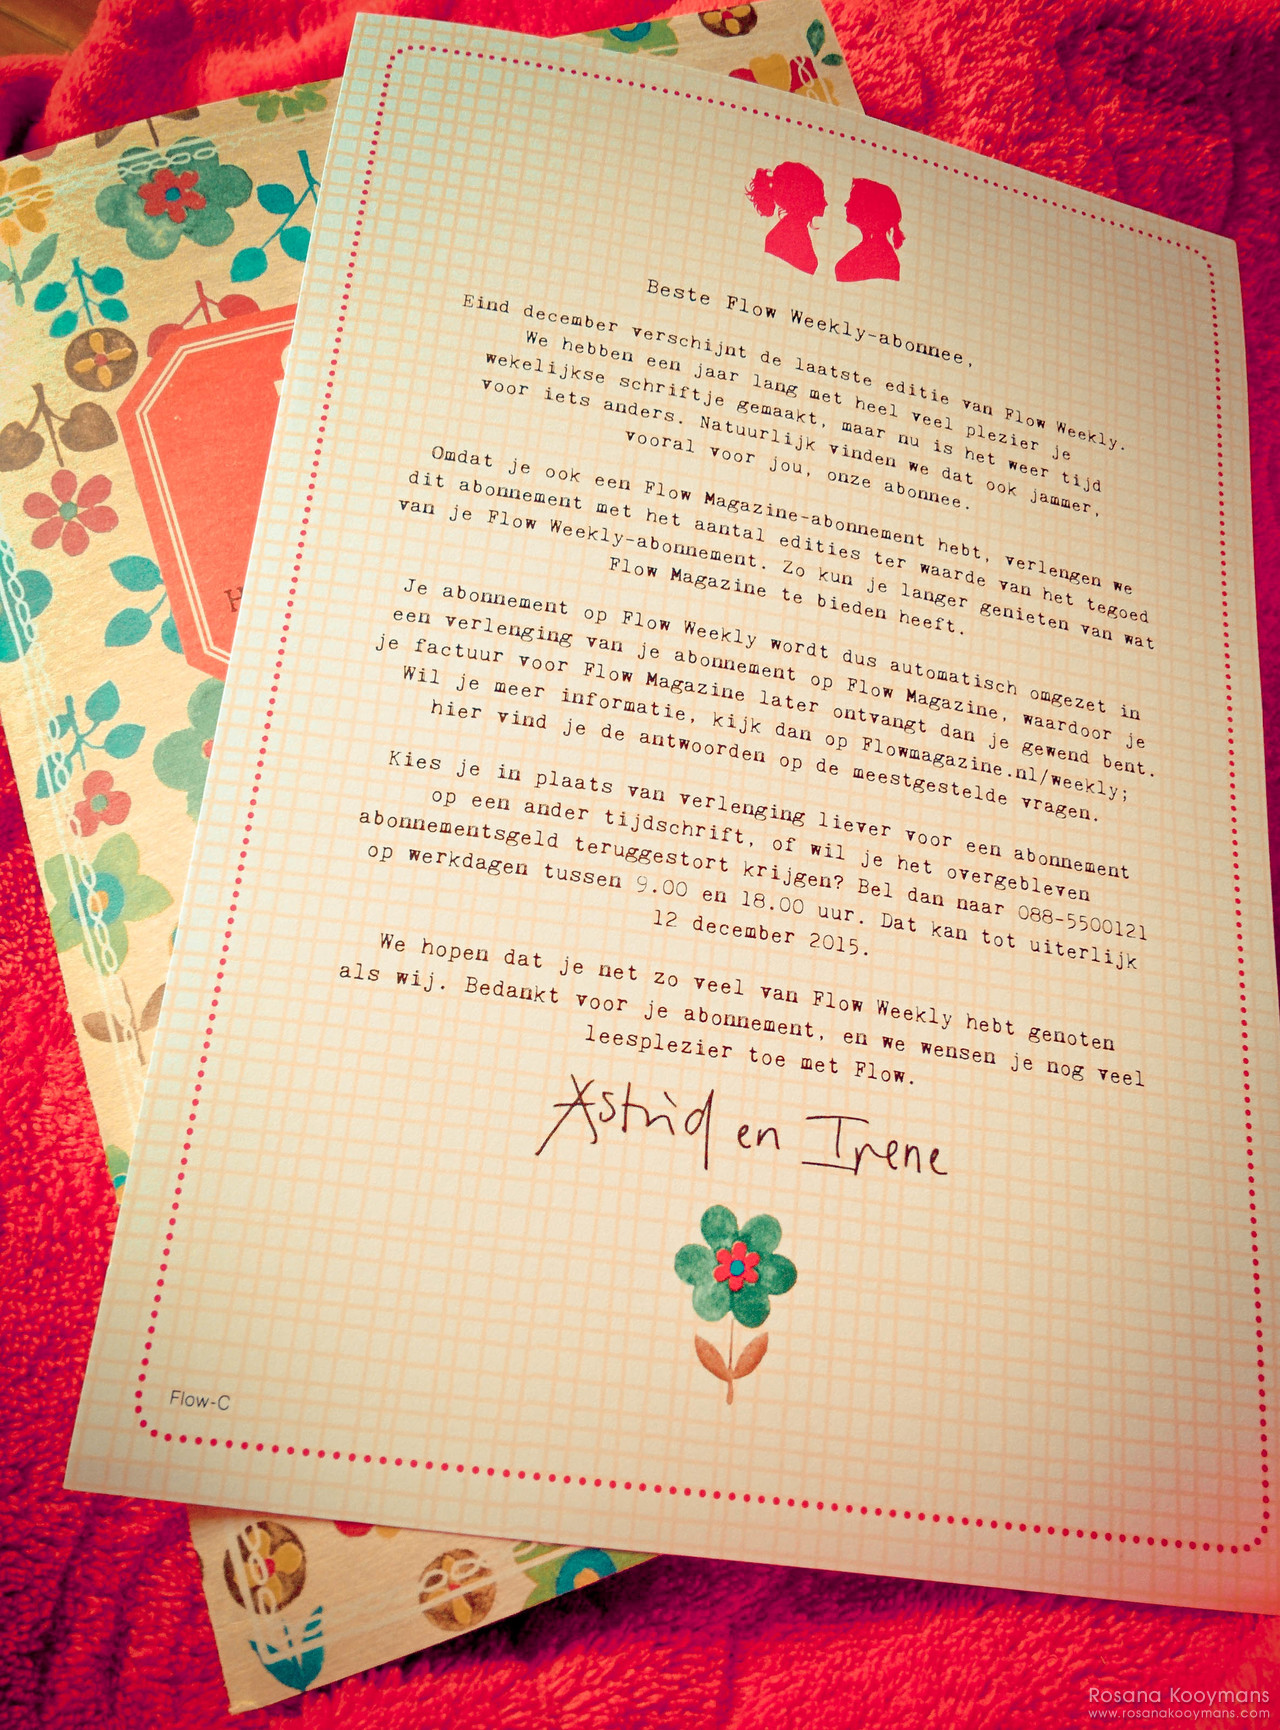 Beste Flow Weekly-abonnee,
Eind december verschijnt de laatste editie van Flow Weekly.
We hebben een jaar lang met heel veel plezier je
wekelijkse schriftje gemaakt, maar nu is het weer tijd
voor iets anders. Natuurlijk vinden we dat ook jammer,
vooral voor jou, onze abonnee.
Omdat je ook een Flow Magazine-abonnement hebt, verlengen we
dit abonnement met het aantal edities ter waarde van het tegoed
van je Flow Weekly-abonnement. Zo kun je langer genieten van wat
Flow Magazine te bieden heeft.
Je abonnement op Flow Weekly wordt dus automatisch omgezet in
een verlenging van je abonnement op Flow Magazine, waardoor je
je factuur voor Flow Magazine later ontvangt dan je gewend bent.
Wil je meer informatie, kijk dan op Flowmagazine.nl/weekly;
hier vind je de antwoorden op de meestgestelde vragen.
Kies je in plaats van verlenging liever voor een abonnement
op een ander tijdschrift, of wil je het overgebleven
abonnementsgeld teruggestort krijgen? Bel dan naar 088-5500121
op werkdagen tussen 9.00 en 18.00 uur. Dat kan tot uiterlijk
12 december 2015.
We hopen dat je net zo veel van Flow Weekly hebt genoten
als wij. Bedankt voor je abonnement, en we wensen je nog veel
leesplezier toe met Flow.
Astrid en Irene
Flow-C
Rosana Kooymans
www.rosanakooymans.com